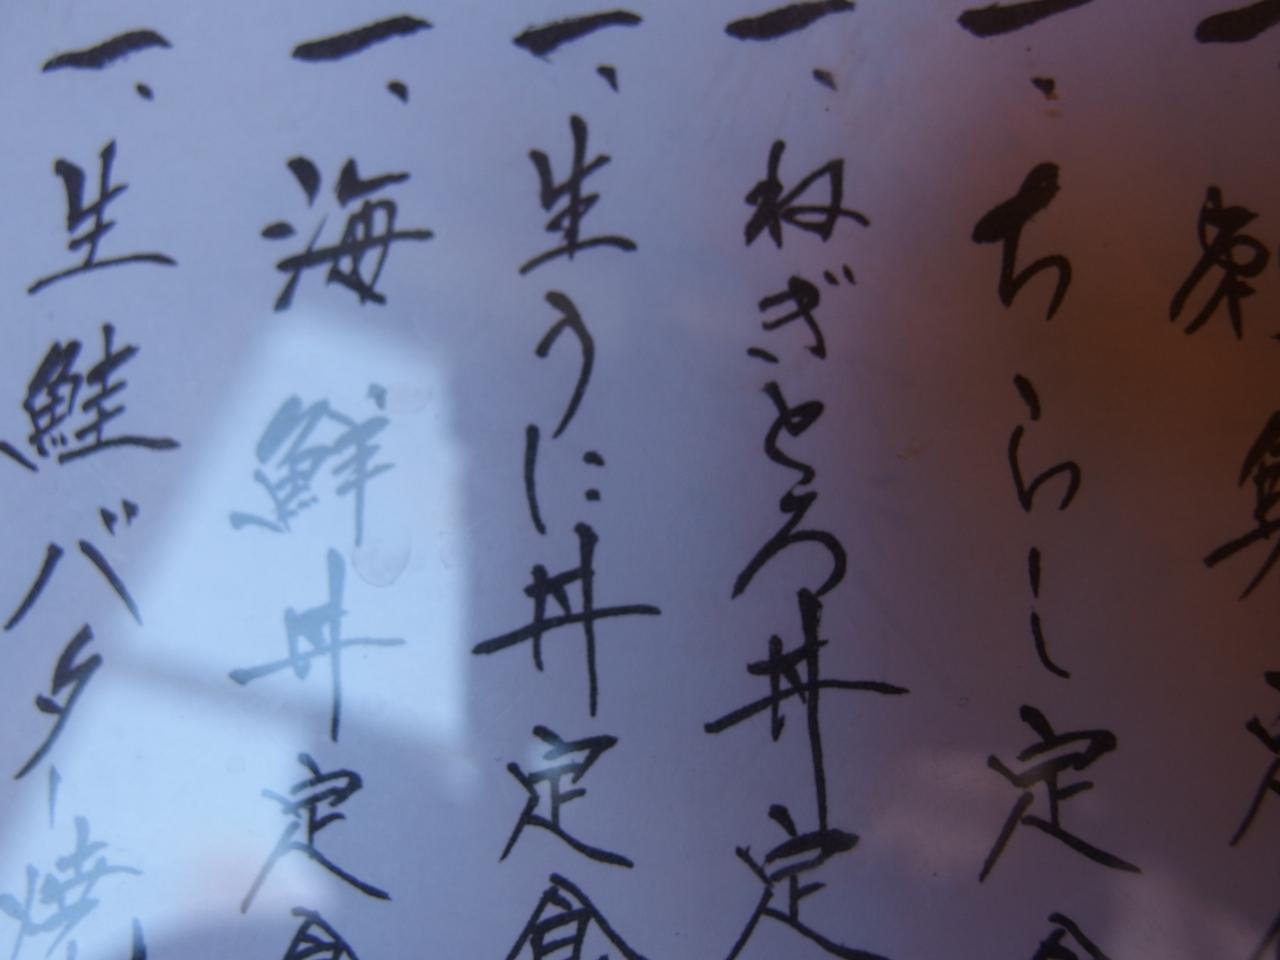 一、ちらし定食
一、ねぎとろ丼定
一、生うに丼定食
一、海鮮丼定食
一、生鮭バター焼